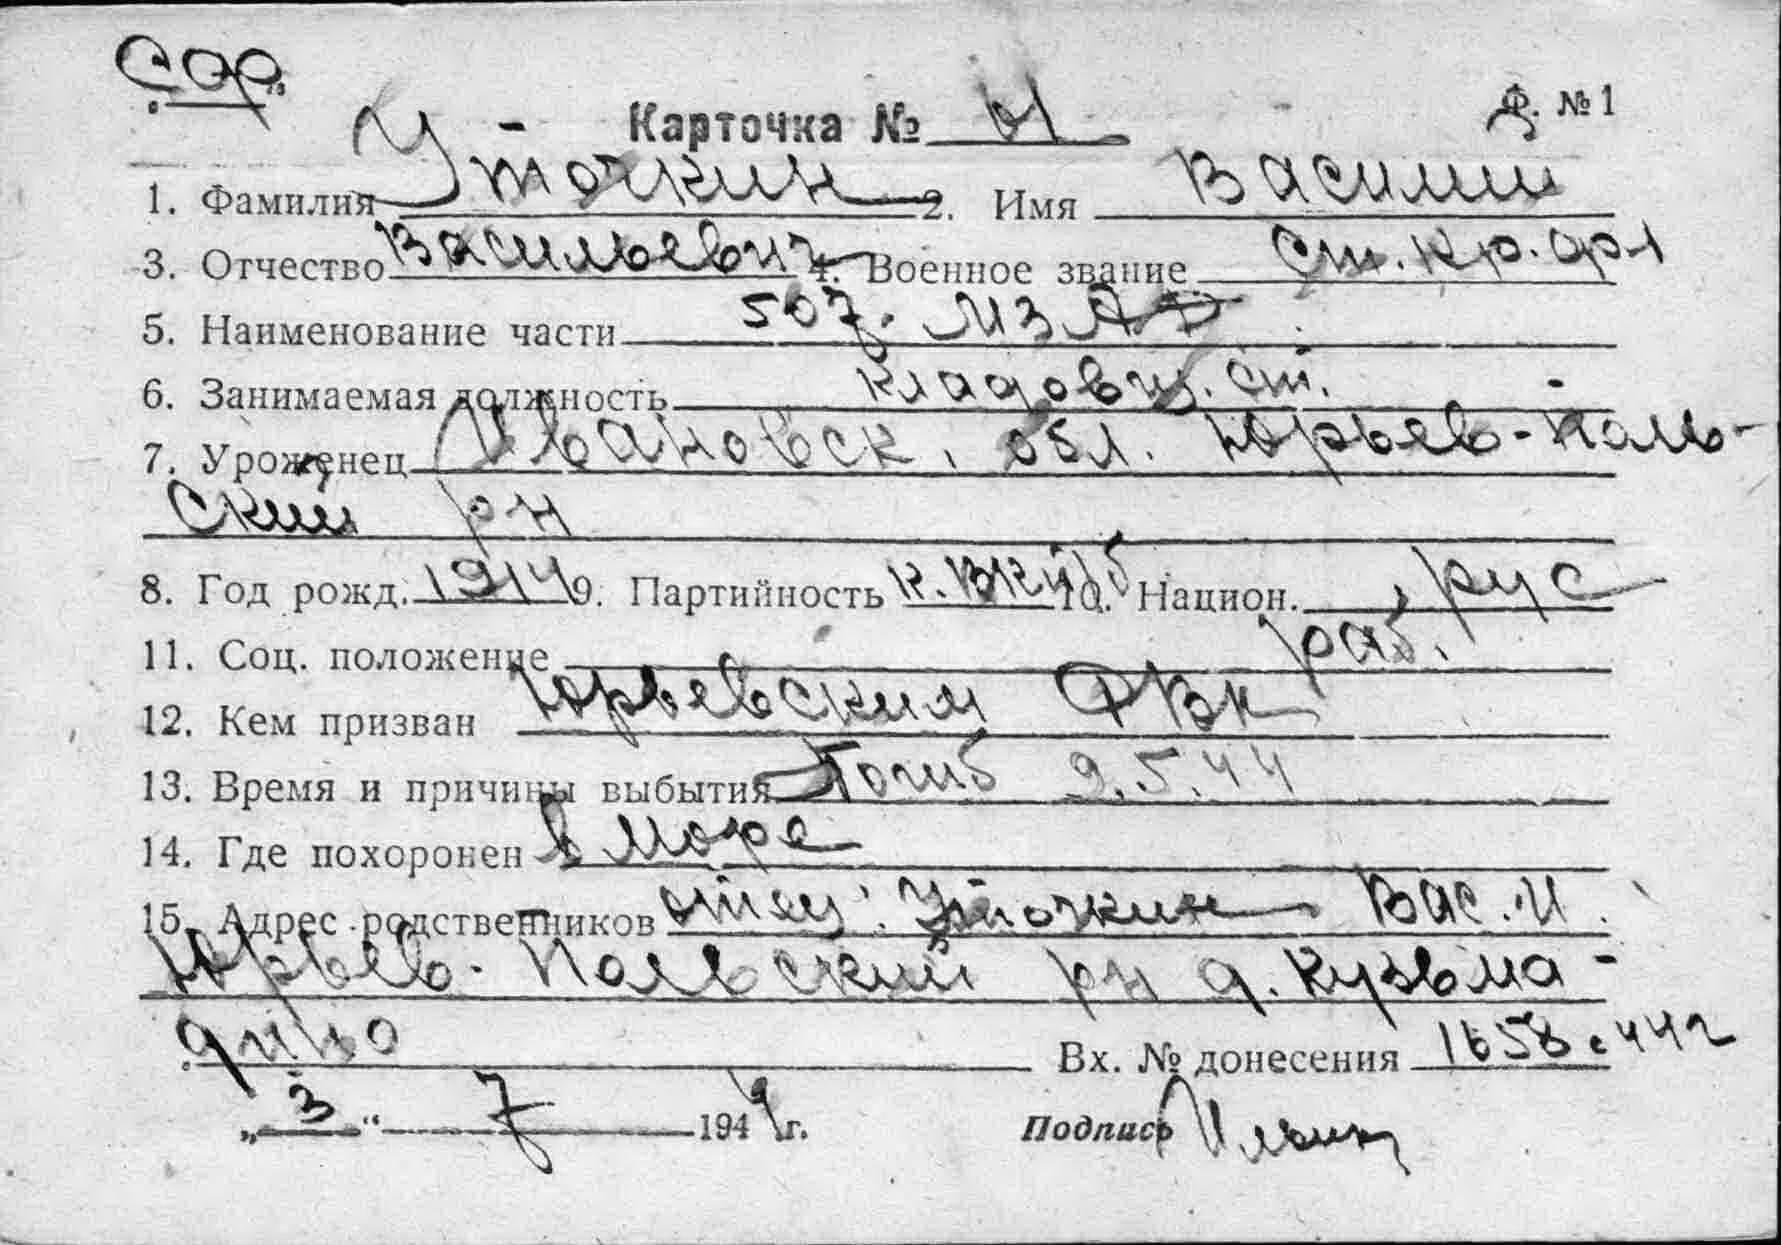 Сар
Карточка № 01 Ф. №1
1. Фамилия Уточкин 2. Имя Василий
3. Отчество Васильевич 4. Военное звание Ст. кр. ар-1
5. Наименование части 507. МЗАД
6. Занимаемая должность кладовщ. ст.
7. Уроженец Ивановск. обл. Юрьев-Поль-
ский рн
8. Год рожд. 1914 9. Партийность к. ВКПб 10. Национ. рус
11. Соц. положение раб.
12. Кем призван Юрьевским РВК
13. Время и причины выбытия Погиб 9.5.44
14. Где похоронен в море
15. Адрес родственников отец: Уточкин Вас. И.
Юрьев-Польский рн д. Кузьма-
дино
Вх. № донесения 1658с 44г
„3“ 7 1944г. Подпись